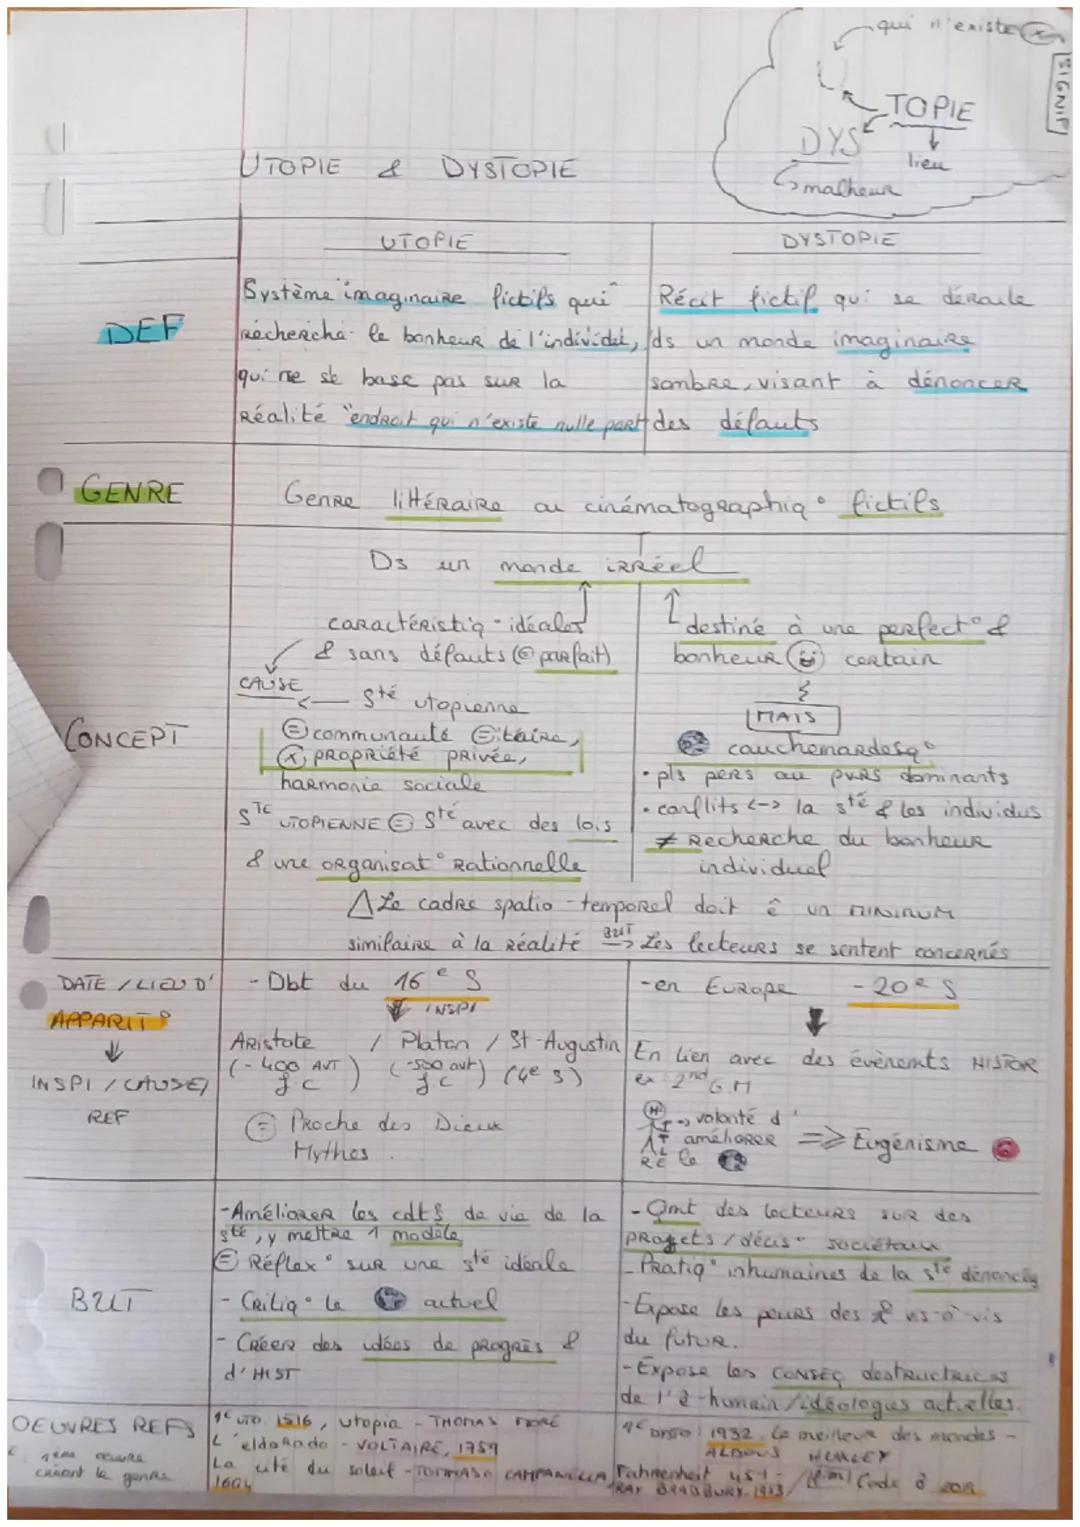 qui n'existe
SIGNIF
U
TOPIE
DYS
lieu
malheur
UTOPIE & DYSTOPIE
UTOPIE
DYSTOPIE
DEF
Système imaginaire fictifs qui
recherche le bonheur de l'individu,
qui ne se base pas sur la
réalité "endroit qui n'existe nulle part
Récit fictif qui se déroule
ds un monde imaginaire
sombre, visant à dénoncer
des défauts
GENRE
Genre littéraire ou cinématographiq° fictifs
CONCEPT
Ds un monde irréel
caractéristiq - idéales
& sans défauts (= parfait)
CAUSE
sté utopienne
= communauté =itaire,
x propriété privée,
harmonie sociale
STE UTOPIENNE = sté avec des lois
& une organisat° rationnelle
destiné à une perfect° &
bonheur certain
MAIS
cauchemardesq°
• pls pers au pvrs dominants
• conflits <-> la sté & les individus
≠ recherche du bonheur
individuel
△ Le cadre spatio-temporel doit ê un MINIMUM
similaire à la réalité BUT → Les lecteurs se sentent concernés
DATE / LIEU D'
APPARIT°
↓
INSPI / CAUSE/
REF
- Dbt du 16e S
↓ INSPI
Aristote / Platon / St-Augustin
(- 400 AVT J C) (-500 avt J C) (4e s)
= Proche des Dieux
Mythes.
- en Europe - 20e S
↓
En lien avec des évènemts HISTOR
ex 2nd G.M
→ volonté d'
améliorer => Eugénisme
le
BUT
- Améliorer les cdt§ de vie de la
sté, y mettre 1 modèle
= Réflex° sur une sté idéale
- Critiq° le actuel
- Créer des idées de progrès &
d'HIST
- Qmt des lecteurs sur des
projets / décis° sociétaux
- Pratiq° inhumaines de la sté dénoncées
- Expose les peurs des vis-à-vis
du futur.
- Expose les CONSEQ destructrices
de l'ê-humain/idéologies actuelles.
OEUVRES REFS
1ère oeuvre
créant le genre
1e UTO 1516, Utopia - THOMAS MORE
L'eldorado - VOLTAIRE, 1759
La cité du soleil - TOMMASO CAMPANELLA
1604
1e DYSTO : 1932. Le meilleur des mondes -
ALDOUS HUXLEY
Fahrenheit 451 - / (film) Code 8 2019
RAY BRADBURY. 1953